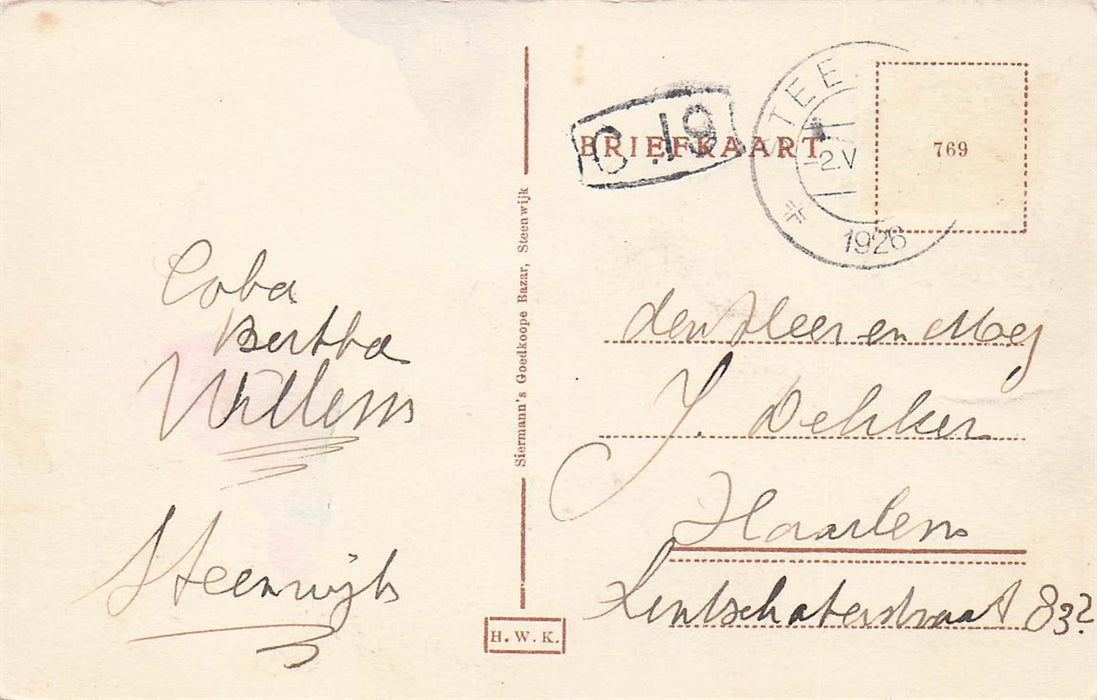 BRIEFKAART
C 19
STEE
2.V
1926
769
Coba
Bertha
Willem
Steenwijk
Siermann's Goedkoope Bazar, Steenwijk
H. W. K.
den Heer en Mej
J. Dekker
Haarlem
83?